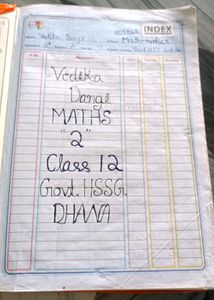 INDEX
Vedika Dangi
Mathematics
Vedika
Dangi
MATHS
"2"
Class 12
Govt. HSSG.
DHANA